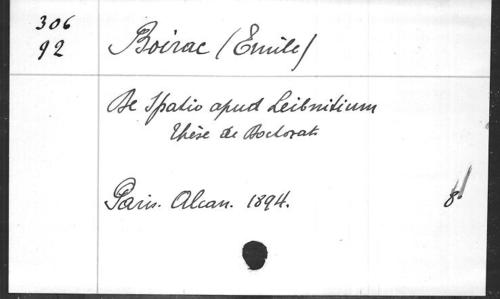 306
92
Boirac (Emile)
De Spatio apud Leibnitium
Thèse de Doctorat
Paris. Alcan. 1894.
8º